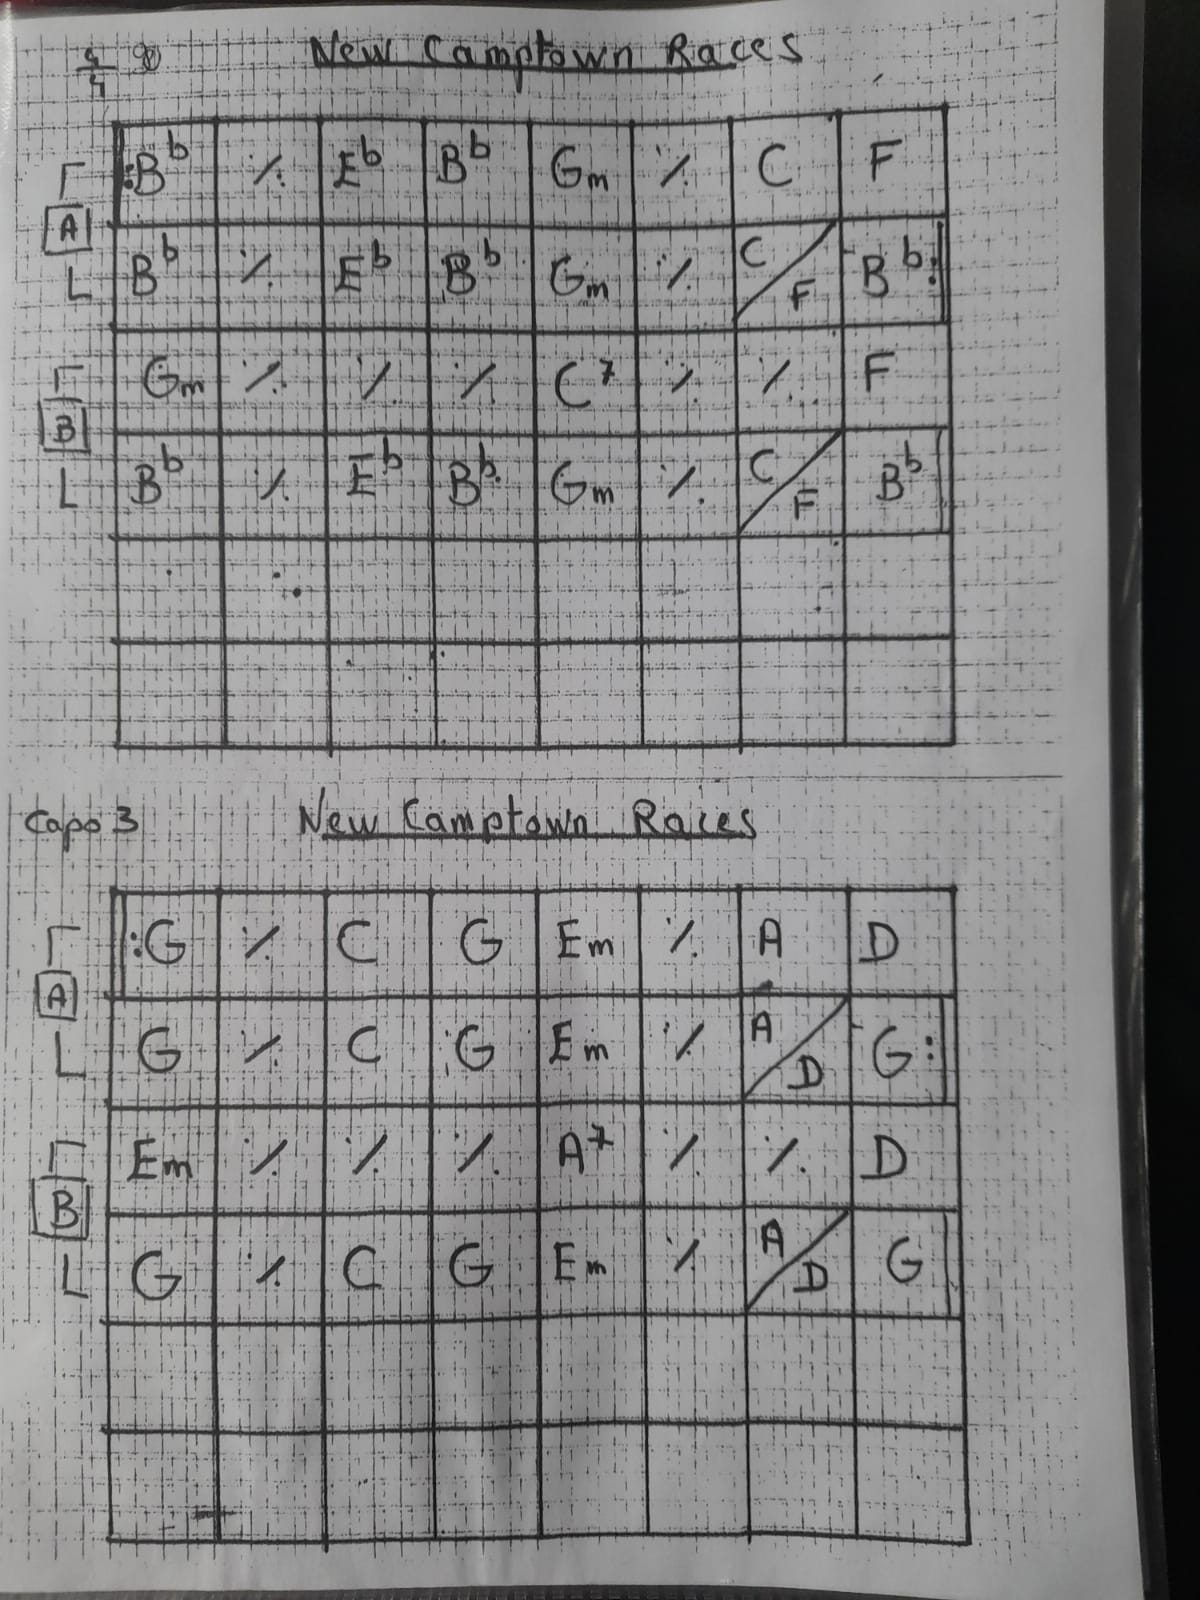 4/4 New Camptown Races
:B♭ ٪ E♭ B♭ Gm ٪ C F
A
B♭ ٪ E♭ B♭ Gm ٪ C/F B♭:
Gm ٪ ٪ ٪ C7 ٪ ٪ F
B
B♭ ٪ E♭ B♭ Gm ٪ C/F B♭
Capo 3 New Camptown Races
:G ٪ C G Em ٪ A D
A
G ٪ C G Em ٪ A/D G:
Em ٪ ٪ ٪ A7 ٪ ٪ D
B
G ٪ C G Em ٪ A/D G